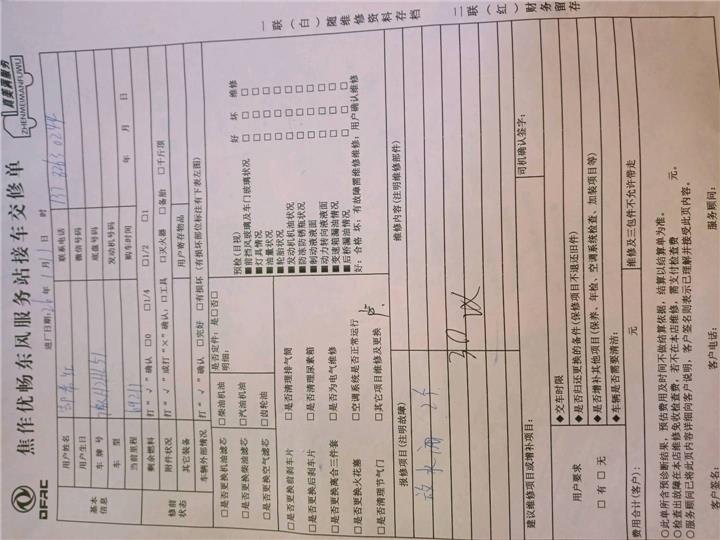 DFAC
焦作优畅东风服务站接车交修单
真美满服务
ZHENMEIMANFUWU
进厂日期: 年 月 日 时
基本信息
用户姓名
联系电话
用户生日
微信号码
车牌号
底盘号码
车型
发动机号码
当前里程
购车时间 年 月 日
修前状态
剩余燃料 打“√”确认 □0 □1/4 □1/2 □1
附件状况 打“√”或打“×”确认,□工具 □灭火器 □备胎 □千斤顶
其它装备
用户寄存物品
车辆外部情况 打“√”确认 □完好 □有损坏(有损坏部位标注有下表左图)
□是否更换机油滤芯 □柴油机油
□是否更换柴油滤芯 □汽油机油
□是否更换空气滤芯 □齿轮油
是否定件:是□否□
明细:
□是否更换前刹车片 □是否清理排气筒
□是否更换后刹车片 □是否清理尿素箱
□是否更换离合三件套 □是否为电气维修
□是否更换火花塞 □空调系统是否正常运行
□是否清理节气门 □其它项目维修及更换
预检(目视) 好 坏 维修
■前挡风玻璃及车门玻璃状况 □ □ □
■灯具情况 □ □ □
■油量状况 □ □ □
■轮胎状况 □ □ □
■发动机机油状况 □ □ □
■防冻防锈瓶状况 □ □ □
■制动液液面 □ □ □
■动力转向液液面 □ □ □
■变速箱漏油情况 □ □ □
■后桥漏油情况 □ □ □
好:合格 坏:有故障需维修维修:用户确认维修
报修项目(注明故障)
维修内容(注明维修部件)
30
建议维修项目或增补项目:
司机确认签字:
用户要求
□有 □无
◆交车时限
◆是否归还更换的备件(保修项目不退还旧件)
◆是否增补其他项目(保养、年检、空调系统检查、加装项目等)
◆车辆是否需要清洁:
费用合计(客户): 元
维修及三包件不允许带走
○此单所含预诊断结果,预估费用及时间不做结算依据,结算以结算单为准。
○检查出故障在本店维修免收检查费,若不在本店维修,需支付检查费 元。
○服务顾问已将此页内容详细向客户说明,客户签名则表示已理解并接受此页内容。
客户签名:
客户电话:
服务顾问:
一联(白)随维修资料存档
二联(红)财务留存